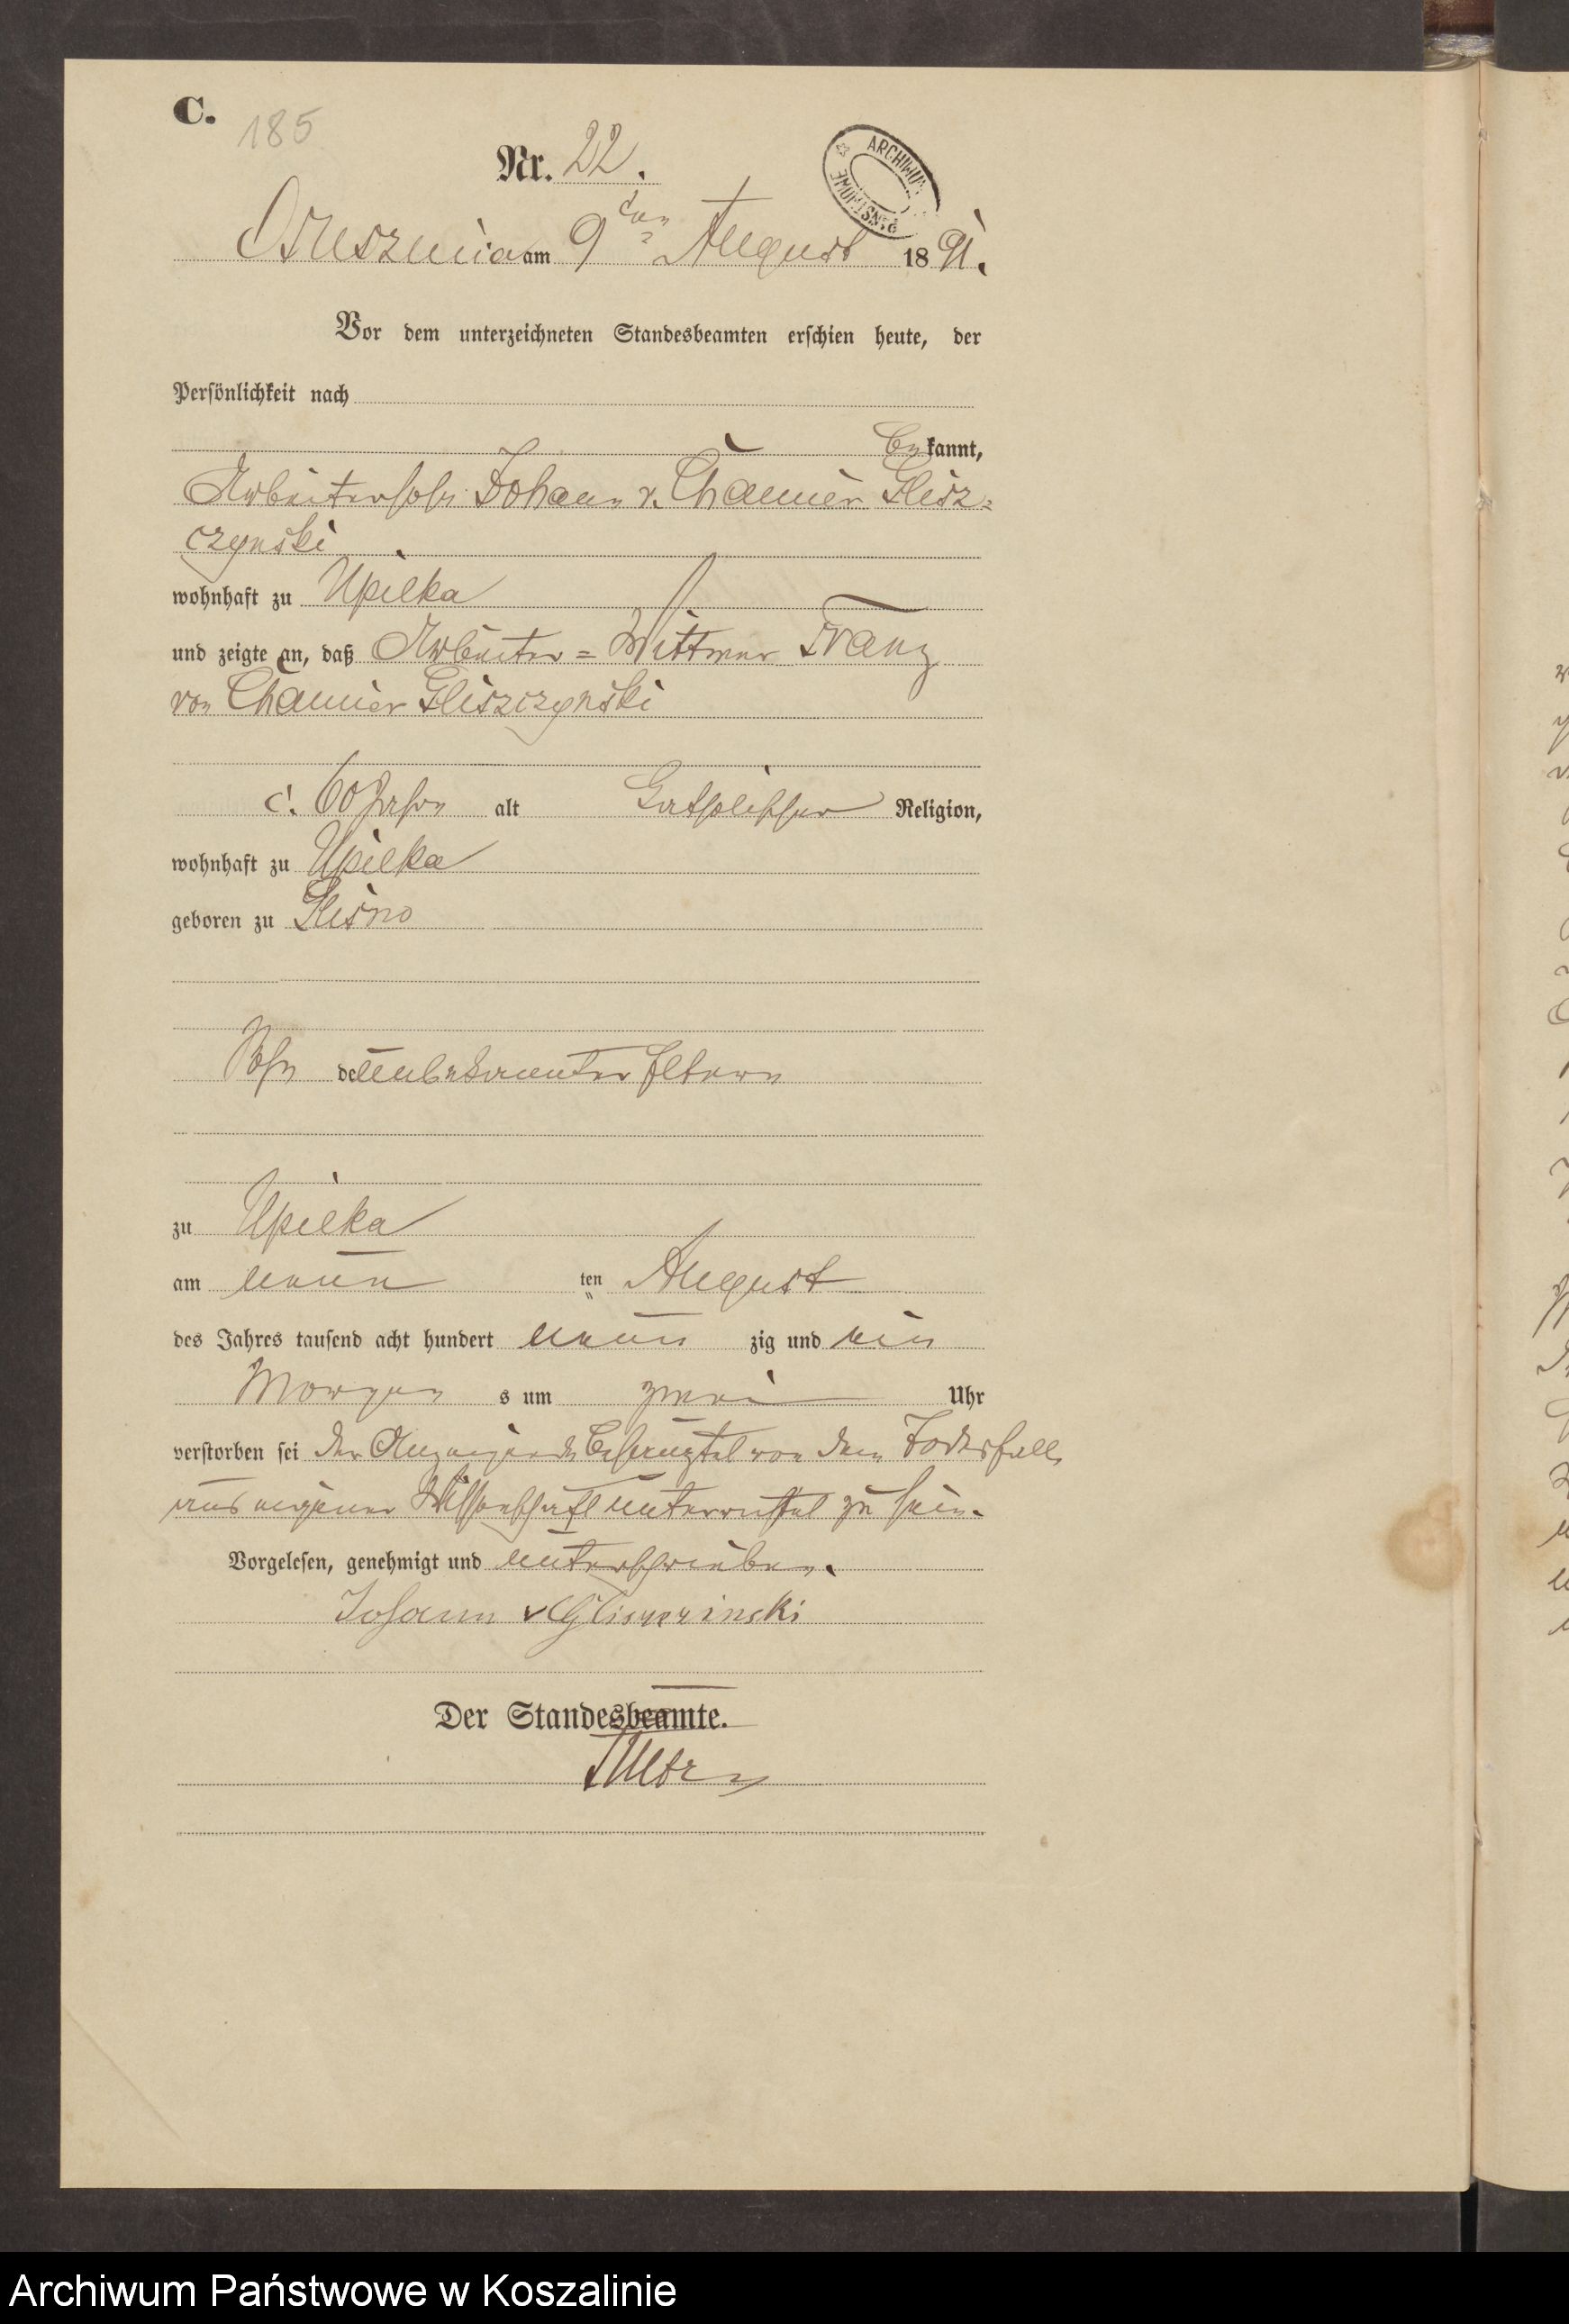 C.
185
Nr. 22.
ARCHIWUM PAŃSTWOWE
Osusznica am 9ten August 1891.
Vor dem unterzeichneten Standesbeamten erschien heute, der
Persönlichkeit nach
bekannt,
Arbeitersohn Johann v. Chamier Glisz=
czynski
wohnhaft zu Upilka
und zeigte an, daß Arbeiter=Wittwer Franz
von Chamier Gliszczynski
c. 60 Jahre alt Katholischer Religion,
wohnhaft zu Upilka
geboren zu Glisno
Sohn de unbekannter Eltern
zu Upilka
am neun ten August
des Jahres tausend acht hundert neun zig und ein
Morgen s um zwei Uhr
verstorben sei der Anzeigende behauptet von dem Todesfall
aus eigener Wissenschaft unterrichtet zu sein.
Vorgelesen, genehmigt und unterschrieben.
Johann v Gliszczinski
Der Standesbeamte.
Archiwum Państwowe w Koszalinie